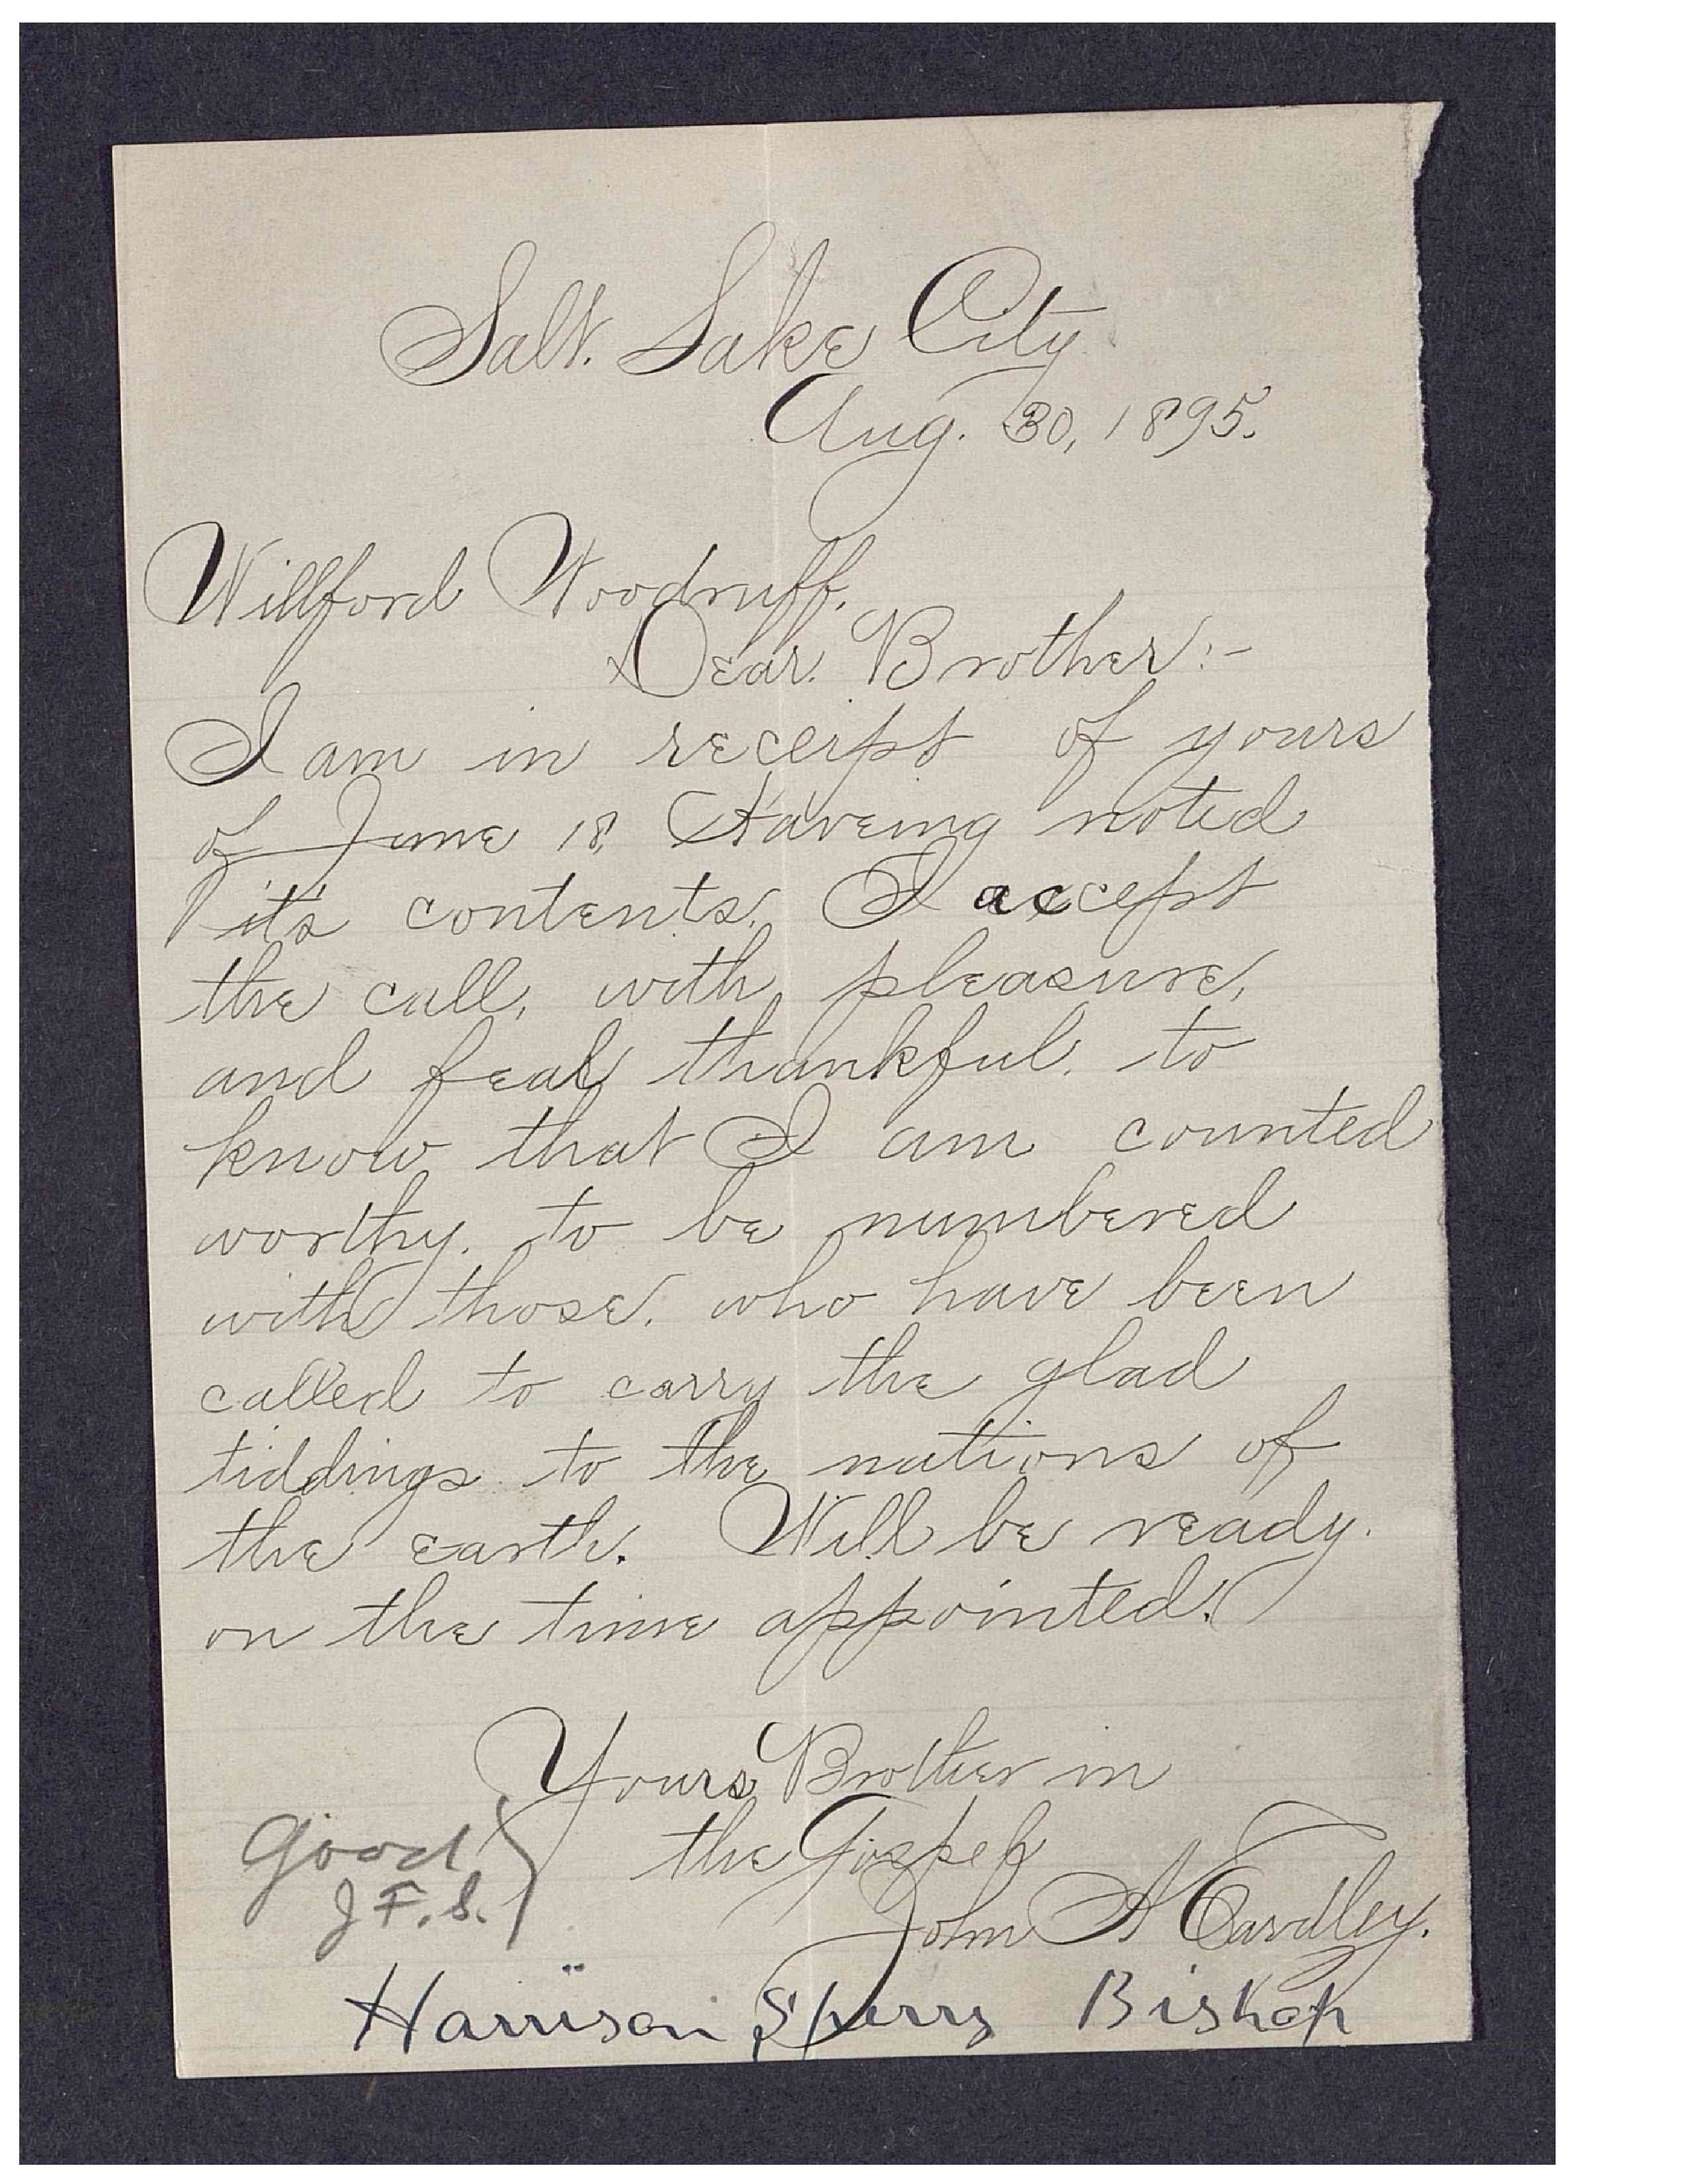 Salt. Lake City
Aug. 30, 1895.
Willford Woodruff.
Dear. Brother:-
I am in receipt of yours
of June 18, Haveing noted
it's contents, I accept
the call, with pleasure,
and feal thankful, to
know that I am counted
worthy. to be numbered
with those. who have been
called to carry the glad
tiddings to the nations of
the earth. Will be ready.
on the time appointed.
Yours Brother in
the Gospel
John A Eardley.
Good
J F. S.
Harrison Sperry Bishop